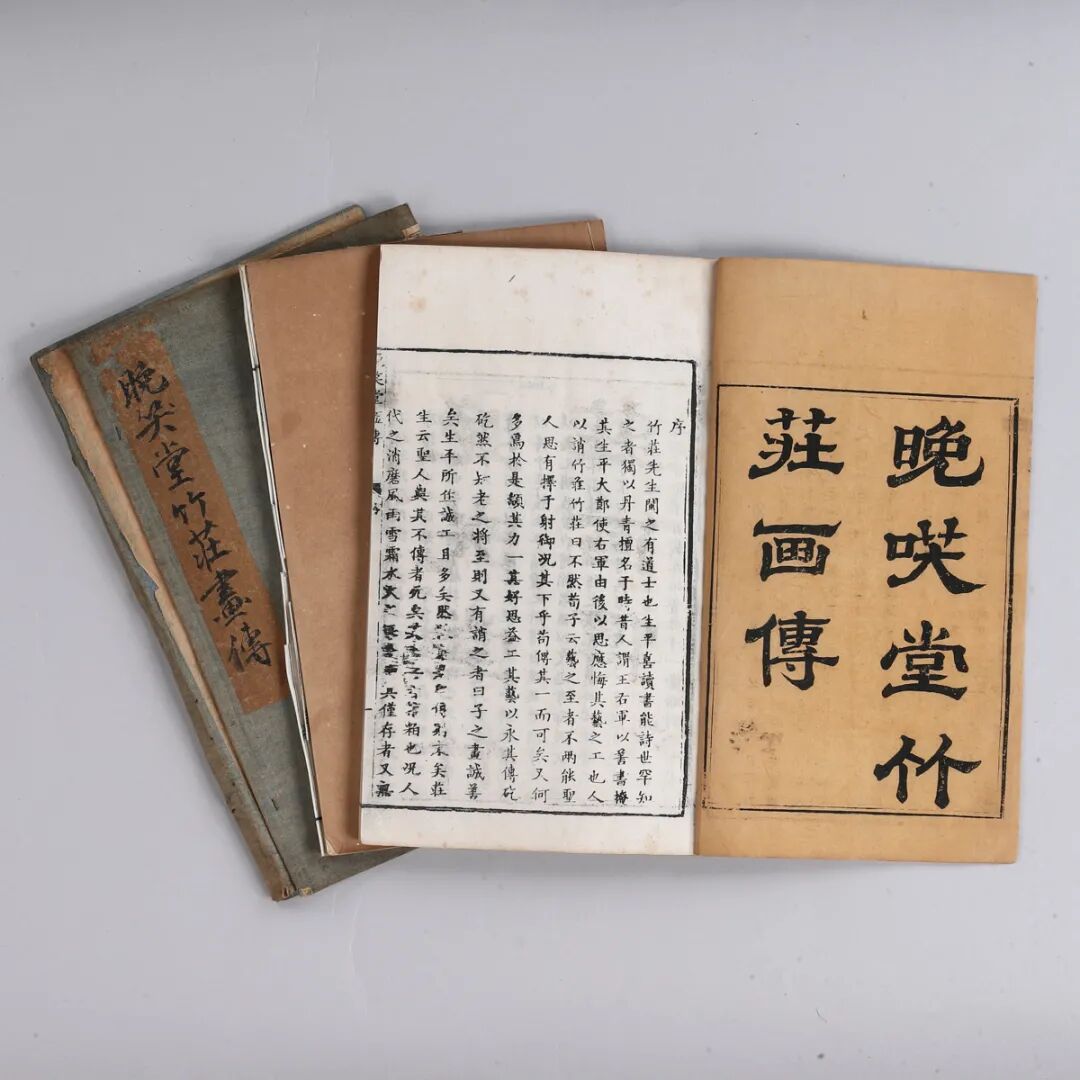 晚笑堂竹莊畫傳
晚㗛堂竹
莊画傳
序
竹莊先生閩之有道士也生平喜讀書能詩世罕知
之者獨以丹青擅名于時昔人謂王右軍以善書掩
其生平大鄭使右軍由後以思應悔其藝之工也人
以消竹莊竹莊曰不然荀子云藝之至者不兩能聖
人思有擇于射御况其下乎苟傳其一而可矣又何
多爲於是顓其力一其好思益工其藝以永其傳矻
矻然不知老之将至則又有誚之者曰子之畫誠善
矣生平所作誠工且多矣然
傳則未矣莊
生云聖人與其不傳者死矣
粕也况人
代之消磨風雨雪霜水火之
具僅存者又